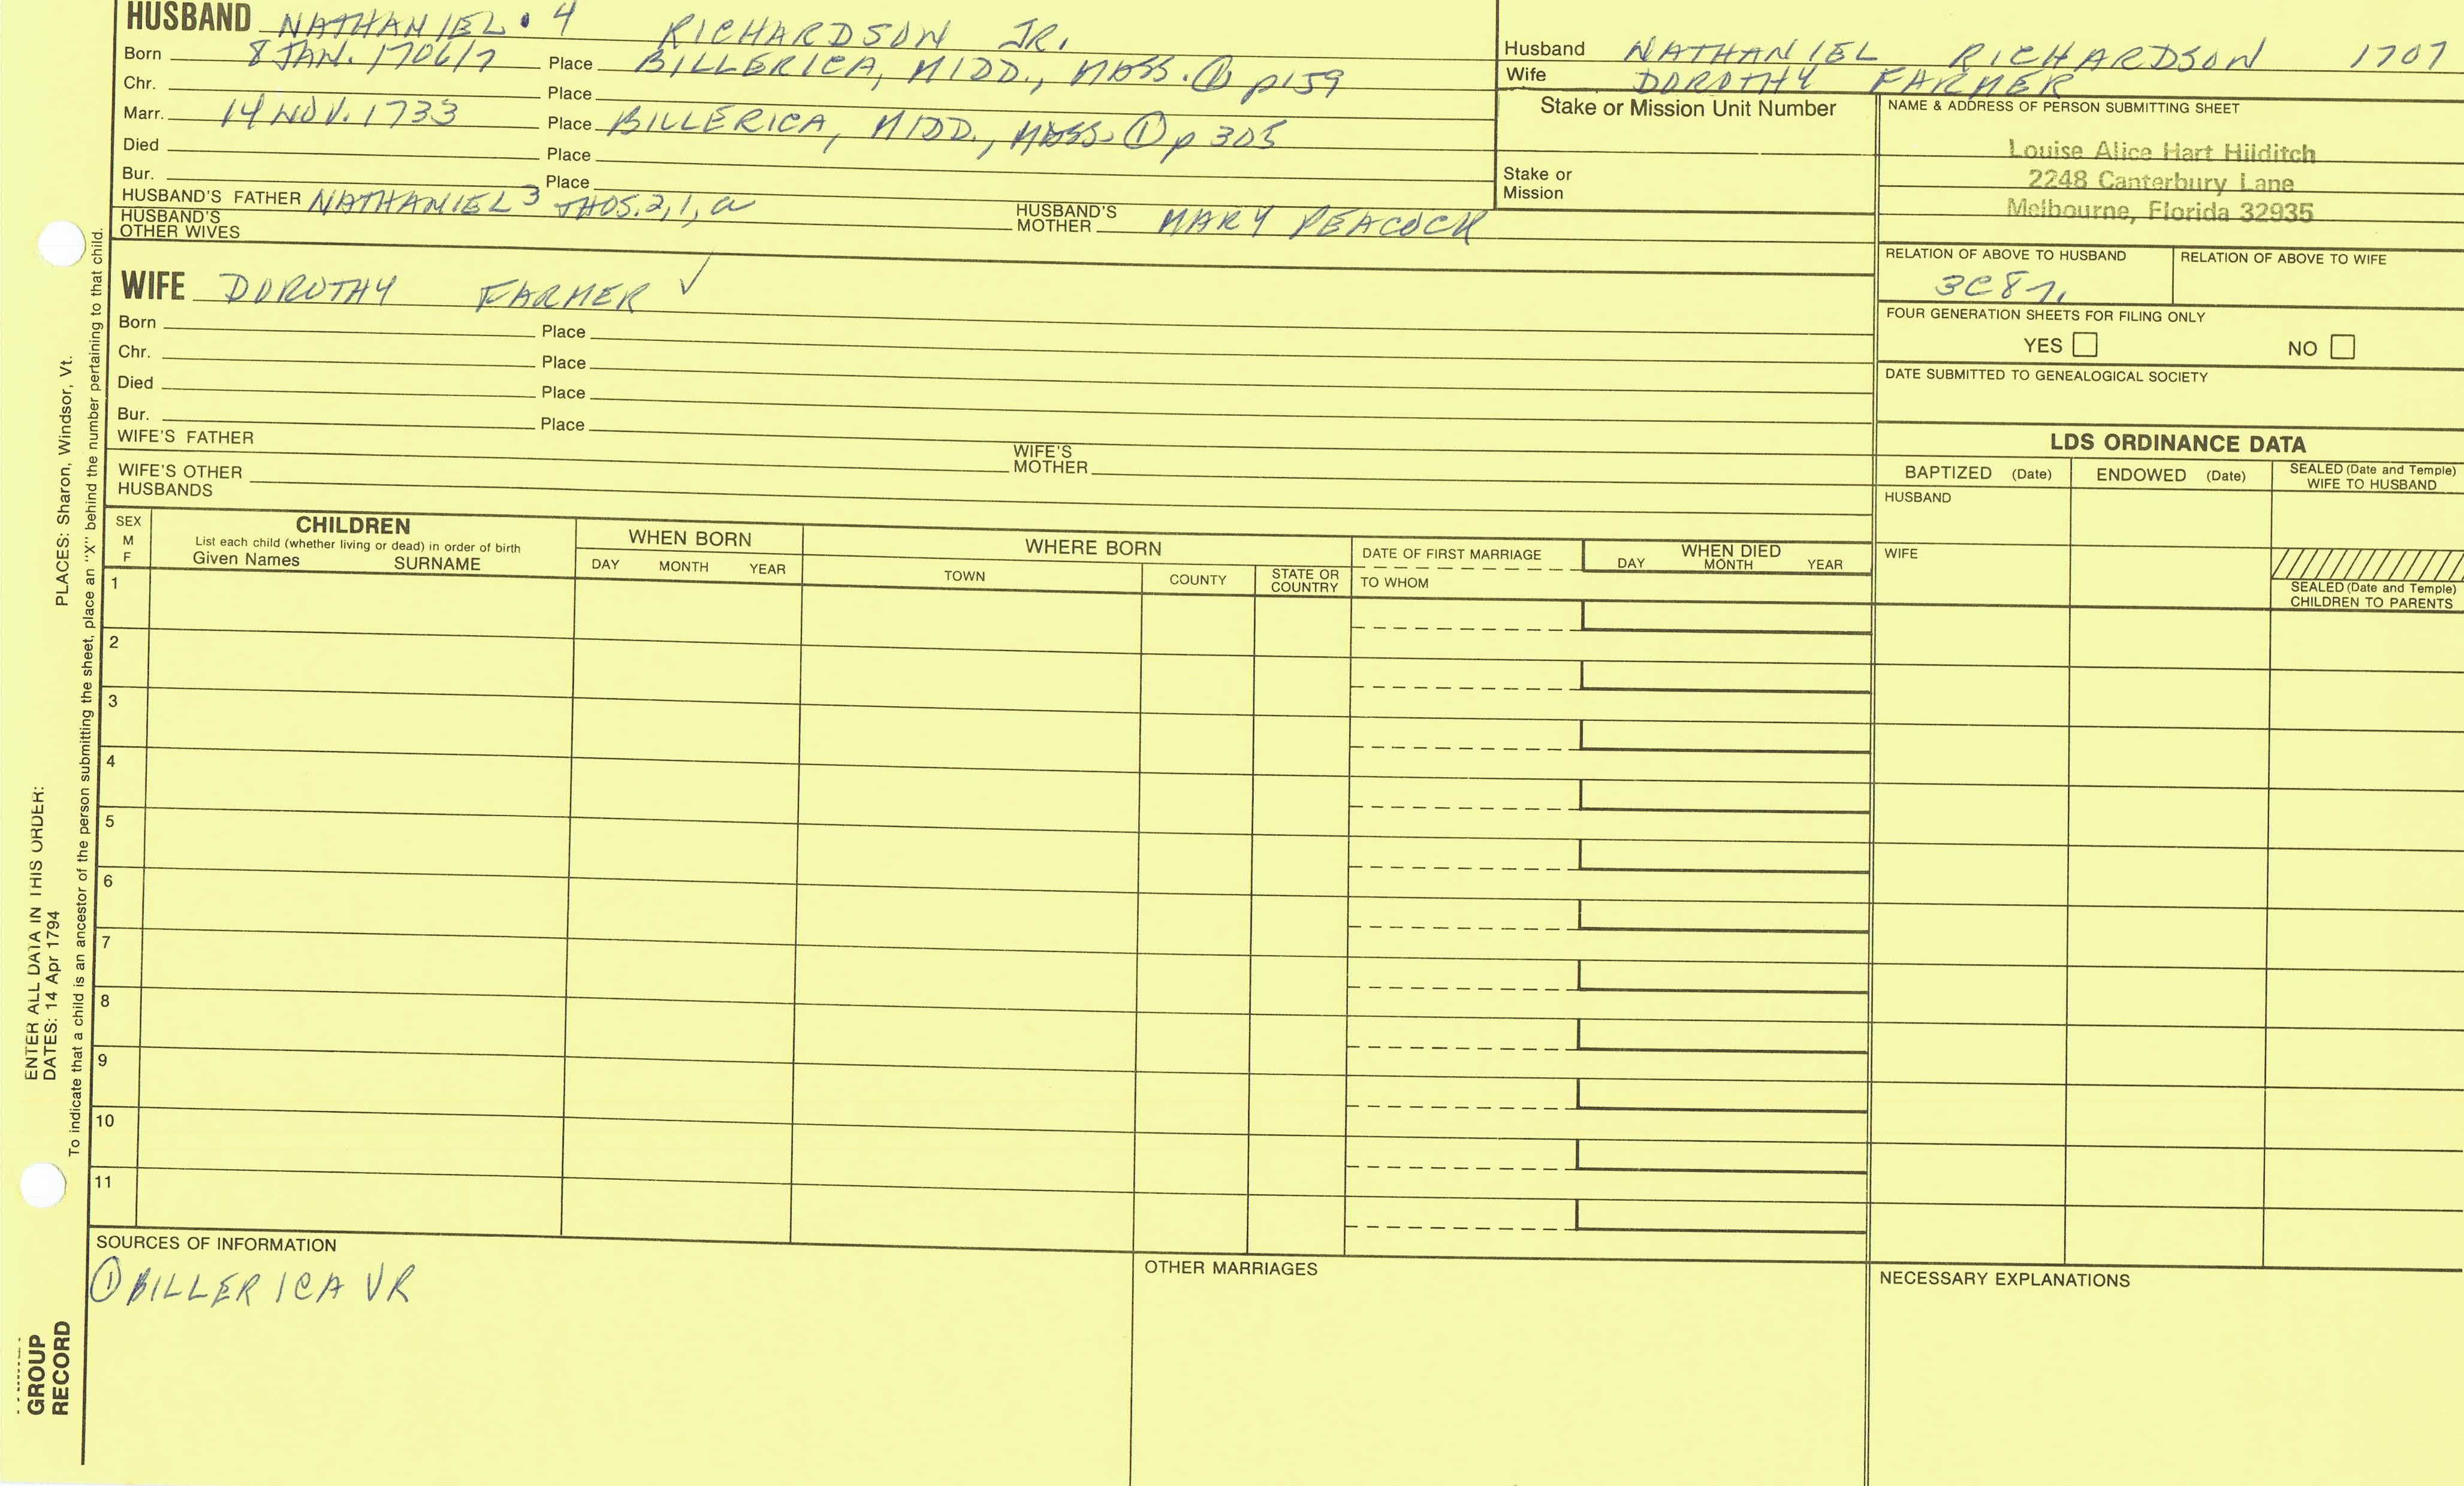 HUSBAND NATHANIEL • 4 RICHARDSON JR.
Born 8 JAN. 1706/7 Place BILLERICA, MIDD., MASS. ① p159
Chr. Place
Marr. 14 NOV. 1733 Place BILLERICA, MIDD., MASS. ① p 305
Died Place
Bur. Place
HUSBAND'S FATHER NATHANIEL 3 THOS. 2, 1, a HUSBAND'S MOTHER MARY PEACOCK
HUSBAND'S OTHER WIVES
Husband NATHANIEL RICHARDSON 1707
Wife DOROTHY FARMER
Stake or Mission Unit Number
Stake or
Mission
NAME & ADDRESS OF PERSON SUBMITTING SHEET
Louise Alice Hart Hilditch
2248 Canterbury Lane
Melbourne, Florida 32935
WIFE DOROTHY FARMER ✓
Born Place
Chr. Place
Died Place
Bur. Place
WIFE'S FATHER WIFE'S MOTHER
WIFE'S OTHER
HUSBANDS
RELATION OF ABOVE TO HUSBAND RELATION OF ABOVE TO WIFE
3C8r.
FOUR GENERATION SHEETS FOR FILING ONLY
YES NO
DATE SUBMITTED TO GENEALOGICAL SOCIETY
LDS ORDINANCE DATA
BAPTIZED (Date) ENDOWED (Date) SEALED (Date and Temple) WIFE TO HUSBAND
HUSBAND
WIFE
SEALED (Date and Temple)
CHILDREN TO PARENTS
SEX
M
F
CHILDREN
List each child (whether living or dead) in order of birth
Given Names SURNAME
WHEN BORN
DAY MONTH YEAR
WHERE BORN
TOWN COUNTY STATE OR COUNTRY
DATE OF FIRST MARRIAGE
TO WHOM
WHEN DIED
DAY MONTH YEAR
1
2
3
4
5
6
7
8
9
10
11
SOURCES OF INFORMATION
① BILLERICA VR
OTHER MARRIAGES
NECESSARY EXPLANATIONS
GROUP
RECORD
ENTER ALL DATA IN THIS ORDER:
DATES: 14 Apr 1794 PLACES: Sharon, Windsor, Vt.
To indicate that a child is an ancestor of the person submitting the sheet, place an "X" behind the number pertaining to that child.